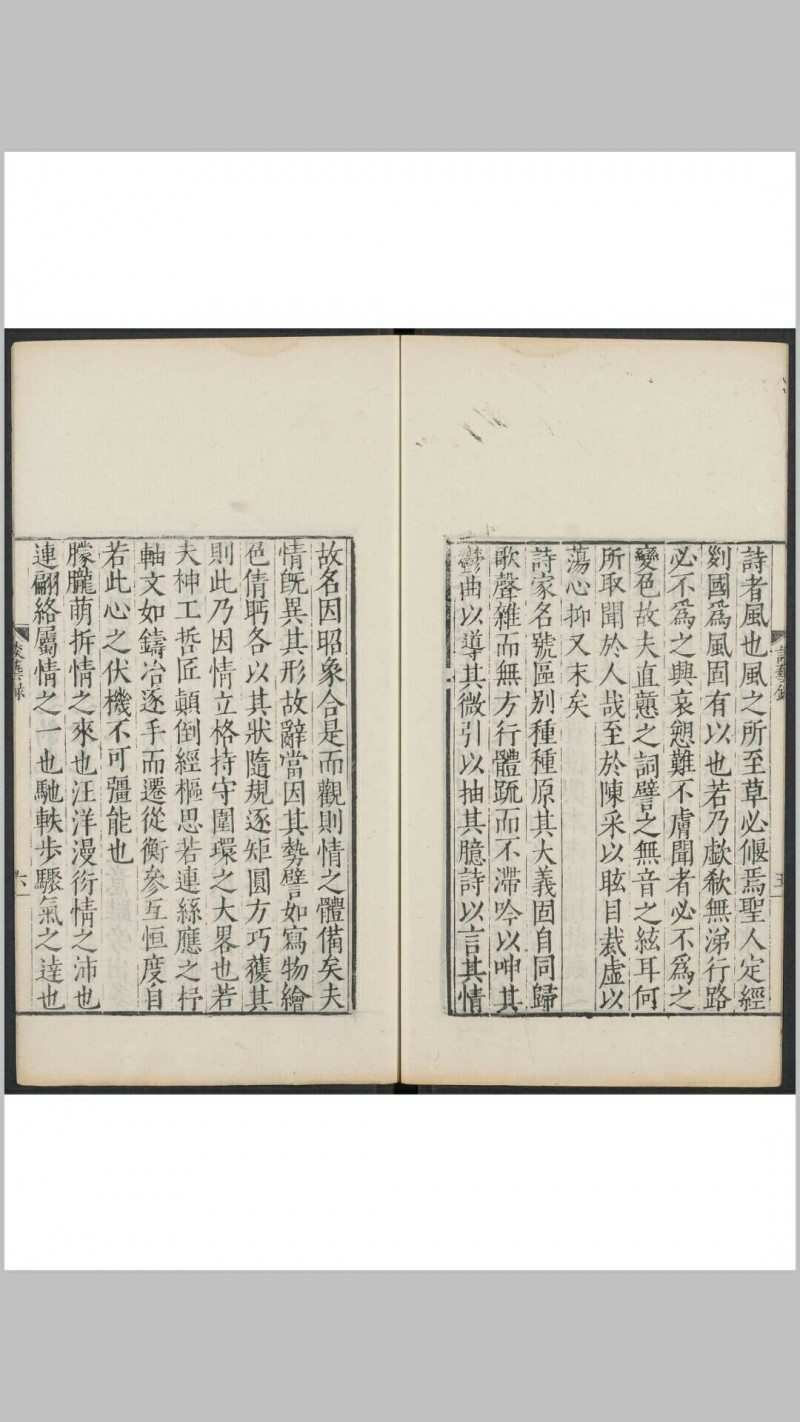 詩者風也風之所至草必偃焉聖人定經
列國為風固有以也若乃歔欷無涕行路
必不為之興哀愬難不膚聞者必不為之
變色故夫直戇之詞譬之無音之絃耳何
所取聞於人哉至於陳采以眩目裁虛以
蕩心抑又末矣
詩家名號區別種種原其大義固自同歸
歌聲雜而無方行體䟽而不滯吟以呻其
鬱曲以導其微引以抽其臆詩以言其情
故名因昭象合是而觀則情之體備矣夫
情旣異其形故辭當因其勢譬如寫物繪
色倩盻各以其狀隨規逐矩圓方巧獲其
則此乃因情立格持守圍環之大畧也若
夫神工哲匠顛倒經樞思若連絲應之杼
軸文如鑄冶逐手而遷從衡參互恒度自
若此心之伏機不可彊能也
朦朧萌拆情之來也汪洋漫衍情之沛也
連翩絡屬情之一也馳軼步驟氣之達也
談藝錄
五
談藝錄
六